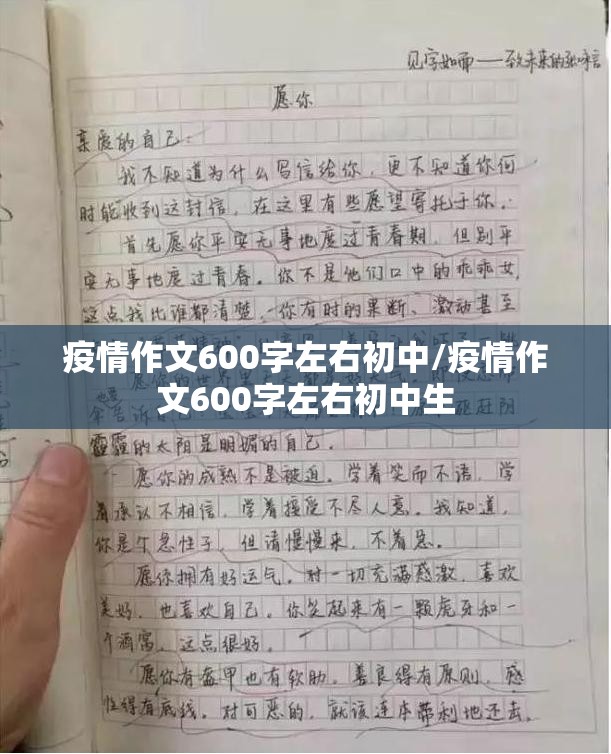 见字如面——致未来的张咏言
愿你
亲爱的自己:
我不知道为什么写信给你,更不知道你何
时能收到这封信,在这里有些愿望寄托于你.
首先愿你平安无事地度过青春期,但别平
安无事地度过青春。你不是他们口中的乖乖女,
这点我比谁都清楚,你有时的果断、激动甚至
疫情作文600字左右初中/疫情作
文600字左右初中生
霾霾的太阳是明媚的自己.
愿你的成熟不是被迫。学着笑而不语,学
着承认不相信,学着接受不尽人意。我知道,
你是个急性子,但请慢慢来,不着急.
愿你拥有好运气,对一切充满感激,喜欢
美好,也喜欢自己。你笑起来有一颗虎牙和一
个酒窝,这点很好。
愿你有盔甲也有软肋,善良得有原则,感
性得有底线。对可恶的,就该连本带利地还去.